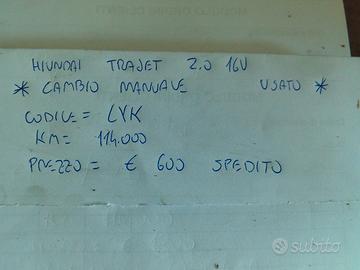 HIUNDAI TRAJET 2.0 16V
* CAMBIO MANUALE USATO *
CODICE = LYK
KM = 114.000
PREZZO = € 600 SPEDITO
subito